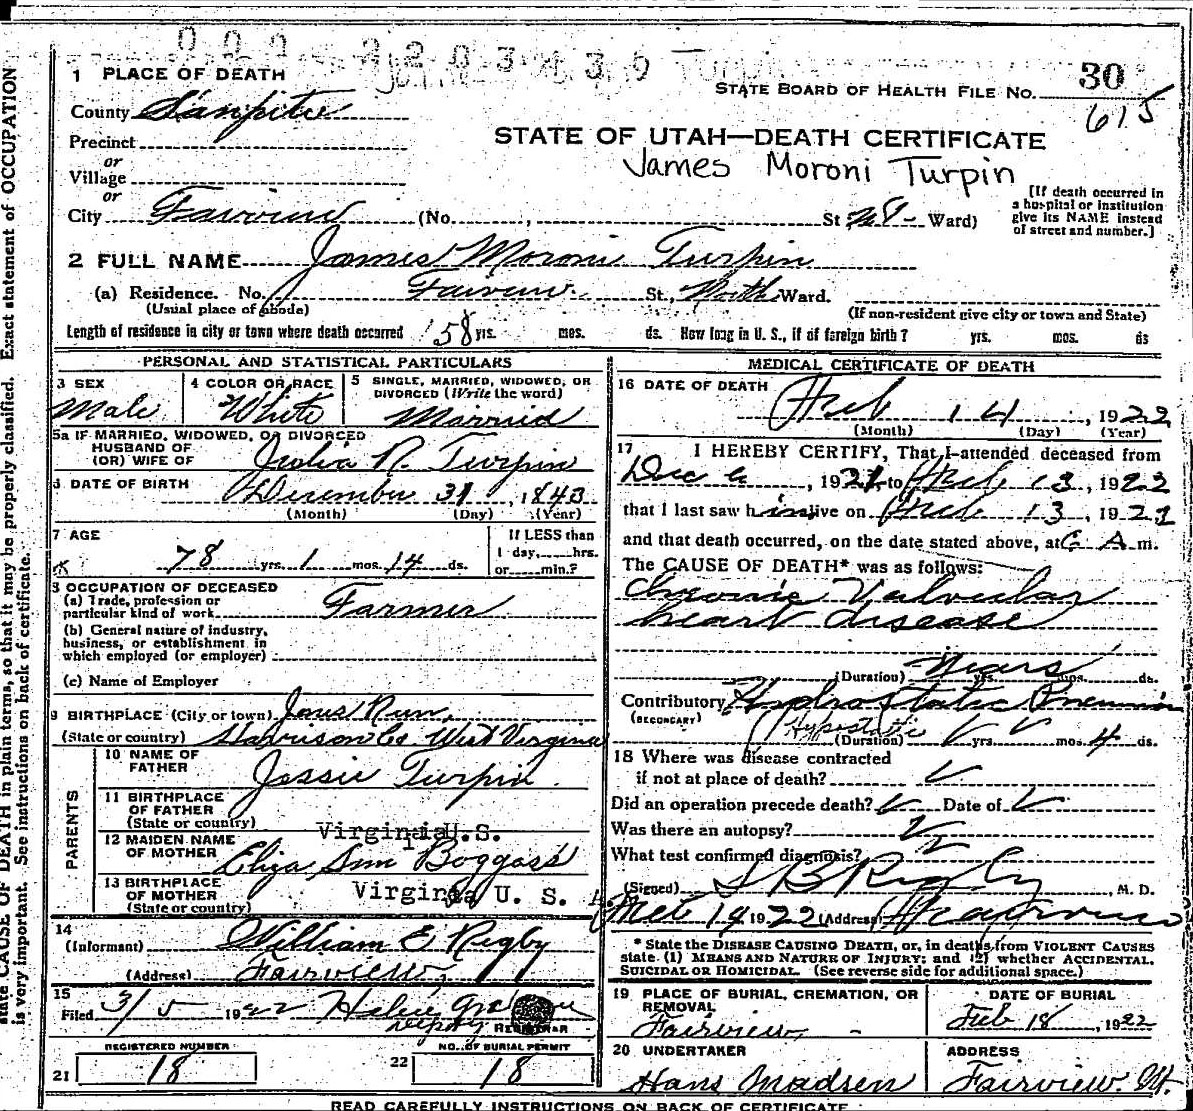 1 PLACE OF DEATH
STATE BOARD OF HEALTH FILE NO. 30
County Sanpete
615
STATE OF UTAH—DEATH CERTIFICATE
Precinct
James Moroni Turpin
or
Village
or
City Fairview (No. , St Ward)
[If death occurred in
a hospital or institution
give its NAME instead
of street and number.]
2 FULL NAME James Moroni Turpin
(a) Residence. No. Fairview St., North Ward.
(Usual place of abode)
(If non-resident give city or town and State)
Length of residence in city or town where death occurred 58 yrs. mos. ds. How long in U. S., if of foreign birth? yrs. mos. ds
PERSONAL AND STATISTICAL PARTICULARS
3 SEX
Male
4 COLOR OR RACE
White
5 SINGLE, MARRIED, WIDOWED, OR
DIVORCED (Write the word)
Married
5a IF MARRIED, WIDOWED, OR DIVORCED
HUSBAND OF
(OR) WIFE OF Julia R. Turpin
6 DATE OF BIRTH December 31, 1843
(Month) (Day) (Year)
7 AGE
78 yrs. 1 mos. 14 ds.
If LESS than
1 day, hrs.
or min.?
8 OCCUPATION OF DECEASED
(a) Trade, profession or
particular kind of work Farmer
(b) General nature of industry,
business, or establishment in
which employed (or employer)
(c) Name of Employer
9 BIRTHPLACE (City or town) Run,
(State or country) Harrison Co West Virginia
PARENTS
10 NAME OF
FATHER Jessie Turpin
11 BIRTHPLACE
OF FATHER
(State or country) Virginia U.S.
12 MAIDEN NAME
OF MOTHER Eliza Ann Boggass
13 BIRTHPLACE
OF MOTHER
(State or country) Virginia U. S.
14
(Informant) William E Rigby
(Address) Fairview,
15
Filed 3/5 1922 Helen
Deputy REGISTRAR
REGISTERED NUMBER
21 18
NO. OF BURIAL PERMIT
22 18
MEDICAL CERTIFICATE OF DEATH
16 DATE OF DEATH
Feb 14, 1922
(Month) (Day) (Year)
17 I HEREBY CERTIFY, That I attended deceased from
Dec 6, 1921, to Feb 13, 1922
that I last saw him alive on Feb 13, 1922
and that death occurred, on the date stated above, at 6 A m.
The CAUSE OF DEATH* was as follows:
Chronic Valvular
heart disease
(Duration) Years yrs. mos. ds.
Contributory Hydrostatic Pneumonia
(SECONDARY) Hypostatic
(Duration) yrs. mos. 4 ds.
18 Where was disease contracted
if not at place of death?
Did an operation precede death? Date of
Was there an autopsy?
What test confirmed diagnosis?
(Signed) S B Rigby M. D.
14 1922 (Address) Fairview
* State the DISEASE CAUSING DEATH, or, in deaths from VIOLENT CAUSES
state. (1) MEANS AND NATURE OF INJURY; and (2) whether ACCIDENTAL,
SUICIDAL OR HOMICIDAL. (See reverse side for additional space.)
19 PLACE OF BURIAL, CREMATION, OR
REMOVAL
Fairview,
DATE OF BURIAL
Feb 18, 1922
20 UNDERTAKER
Hans Madsen
ADDRESS
Fairview. Ut.
READ CAREFULLY INSTRUCTIONS ON BACK OF CERTIFICATE
state CAUSE OF DEATH in plain terms, so that it may be properly classified. Exact statement of OCCUPATION
is very important. See instructions on back of certificate.